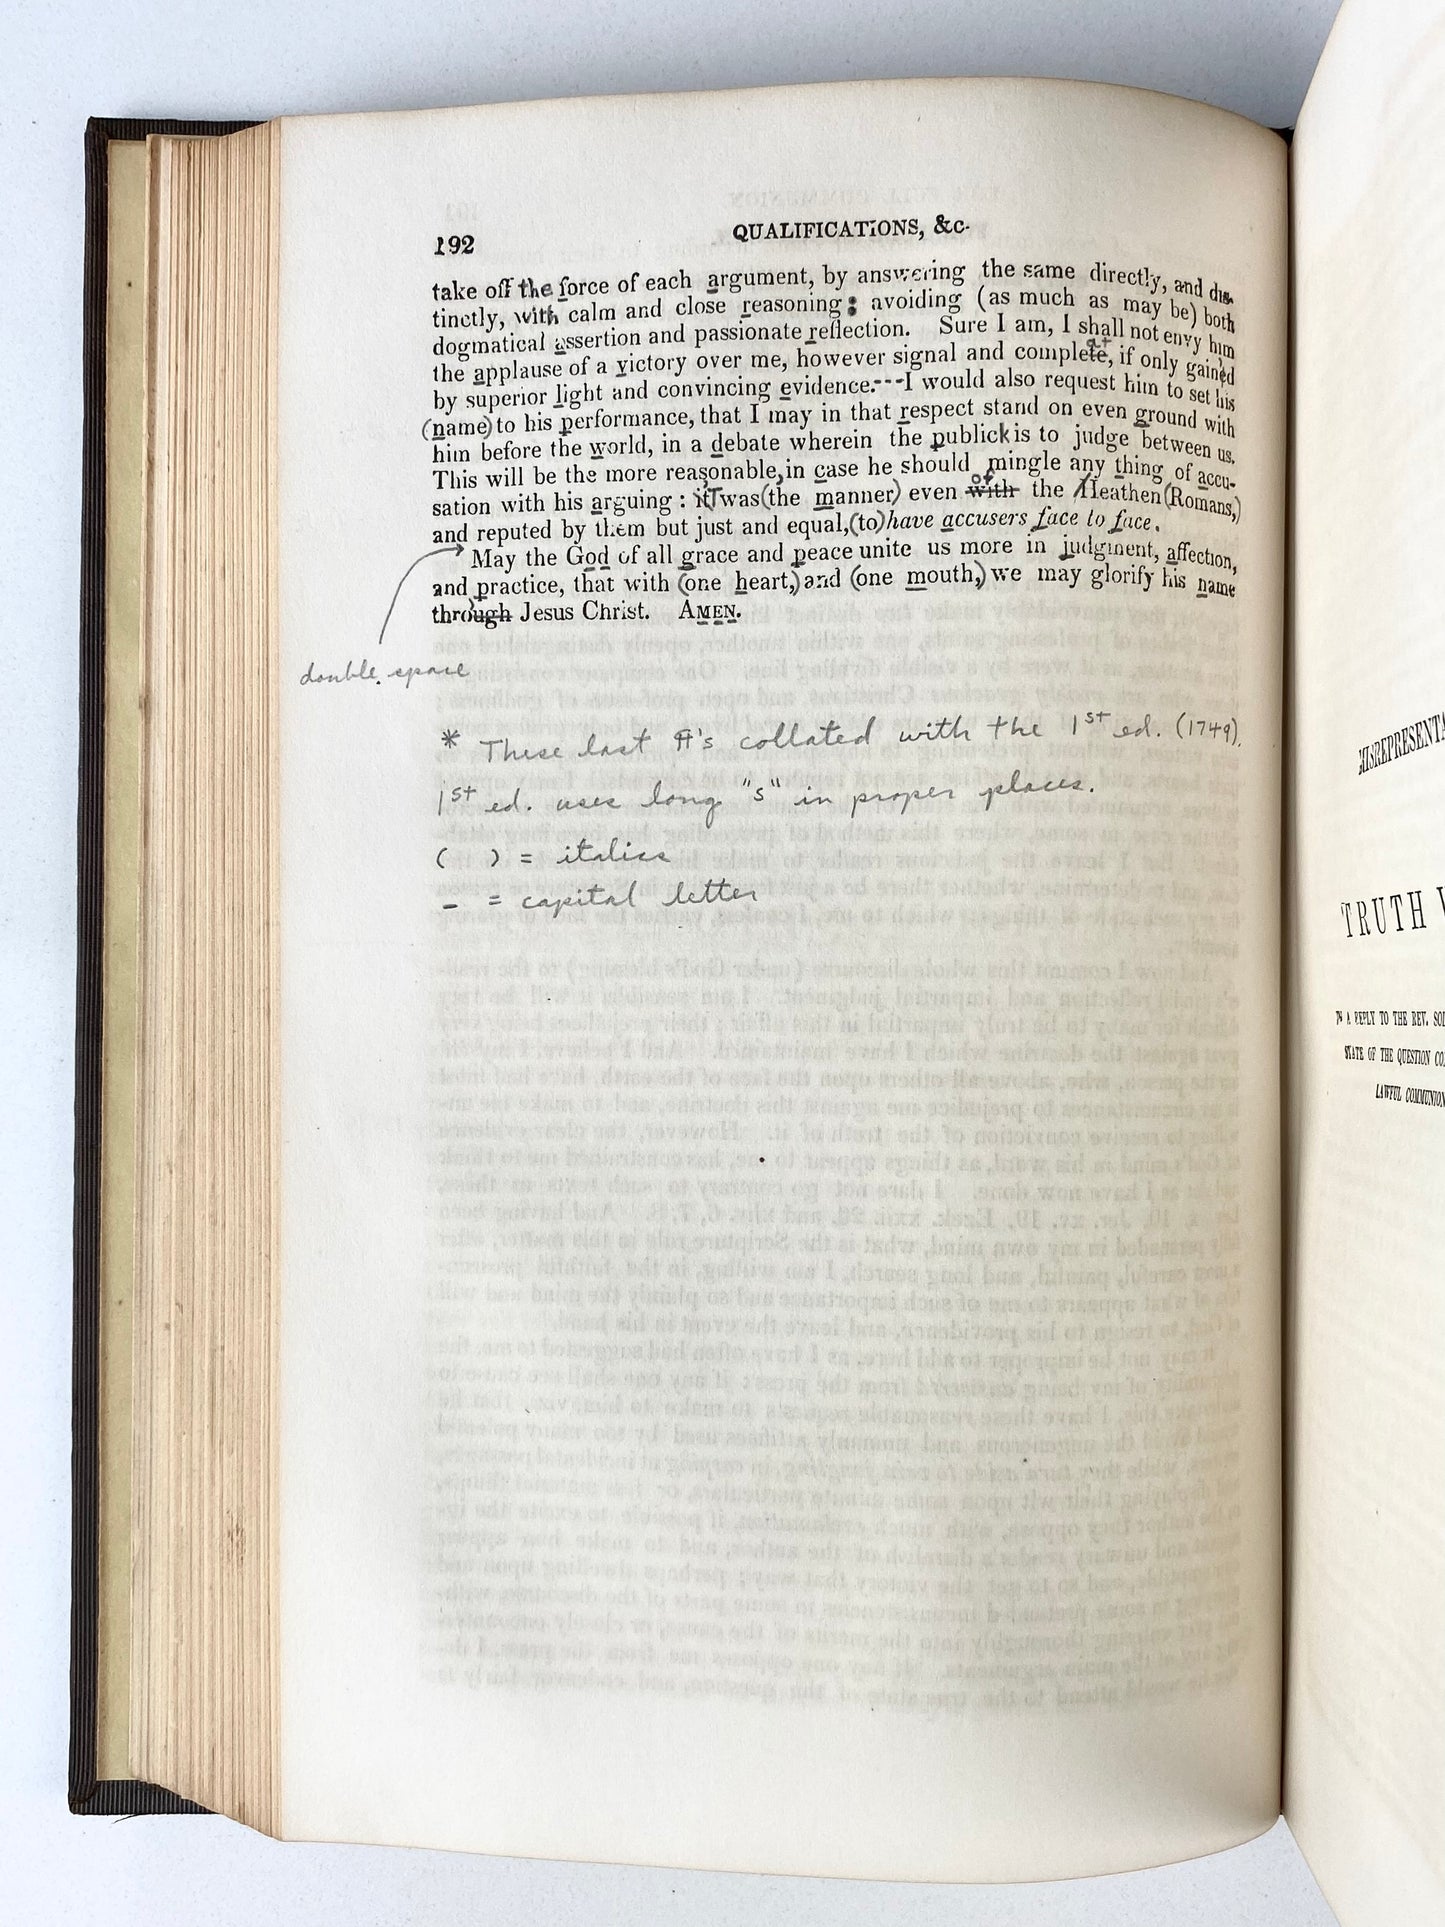 192
QUALIFICATIONS, &c.
take off the force of each argument, by answering the same directly, and dis-
tinctly, with calm and close reasoning; avoiding (as much as may be) both
dogmatical assertion and passionate reflection. Sure I am, I shall not envy him
the applause of a victory over me, however signal and complete, if only gained
by superior light and convincing evidence.---I would also request him to set his
(name) to his performance, that I may in that respect stand on even ground with
him before the world, in a debate wherein the publick is to judge between us.
This will be the more reasonable, in case he should mingle any thing of accu-
sation with his arguing: it was (the manner) even with of the Heathen (Romans,)
and reputed by them but just and equal, (to) have accusers face to face.
May the God of all grace and peace unite us more in judgment, affection,
and practice, that with (one heart,) and (one mouth,) we may glorify his name
through Jesus Christ. AMEN.
double space
* These last ¶'s collated with the 1st ed. (1749).
1st ed. uses long "s" in proper places.
( ) = italics
_ = capital letter
MISREPRESENTA
TRUTH V
IN A REPLY TO THE REV. SOL
STATE OF THE QUESTION CO
LAWFUL COMMUNION